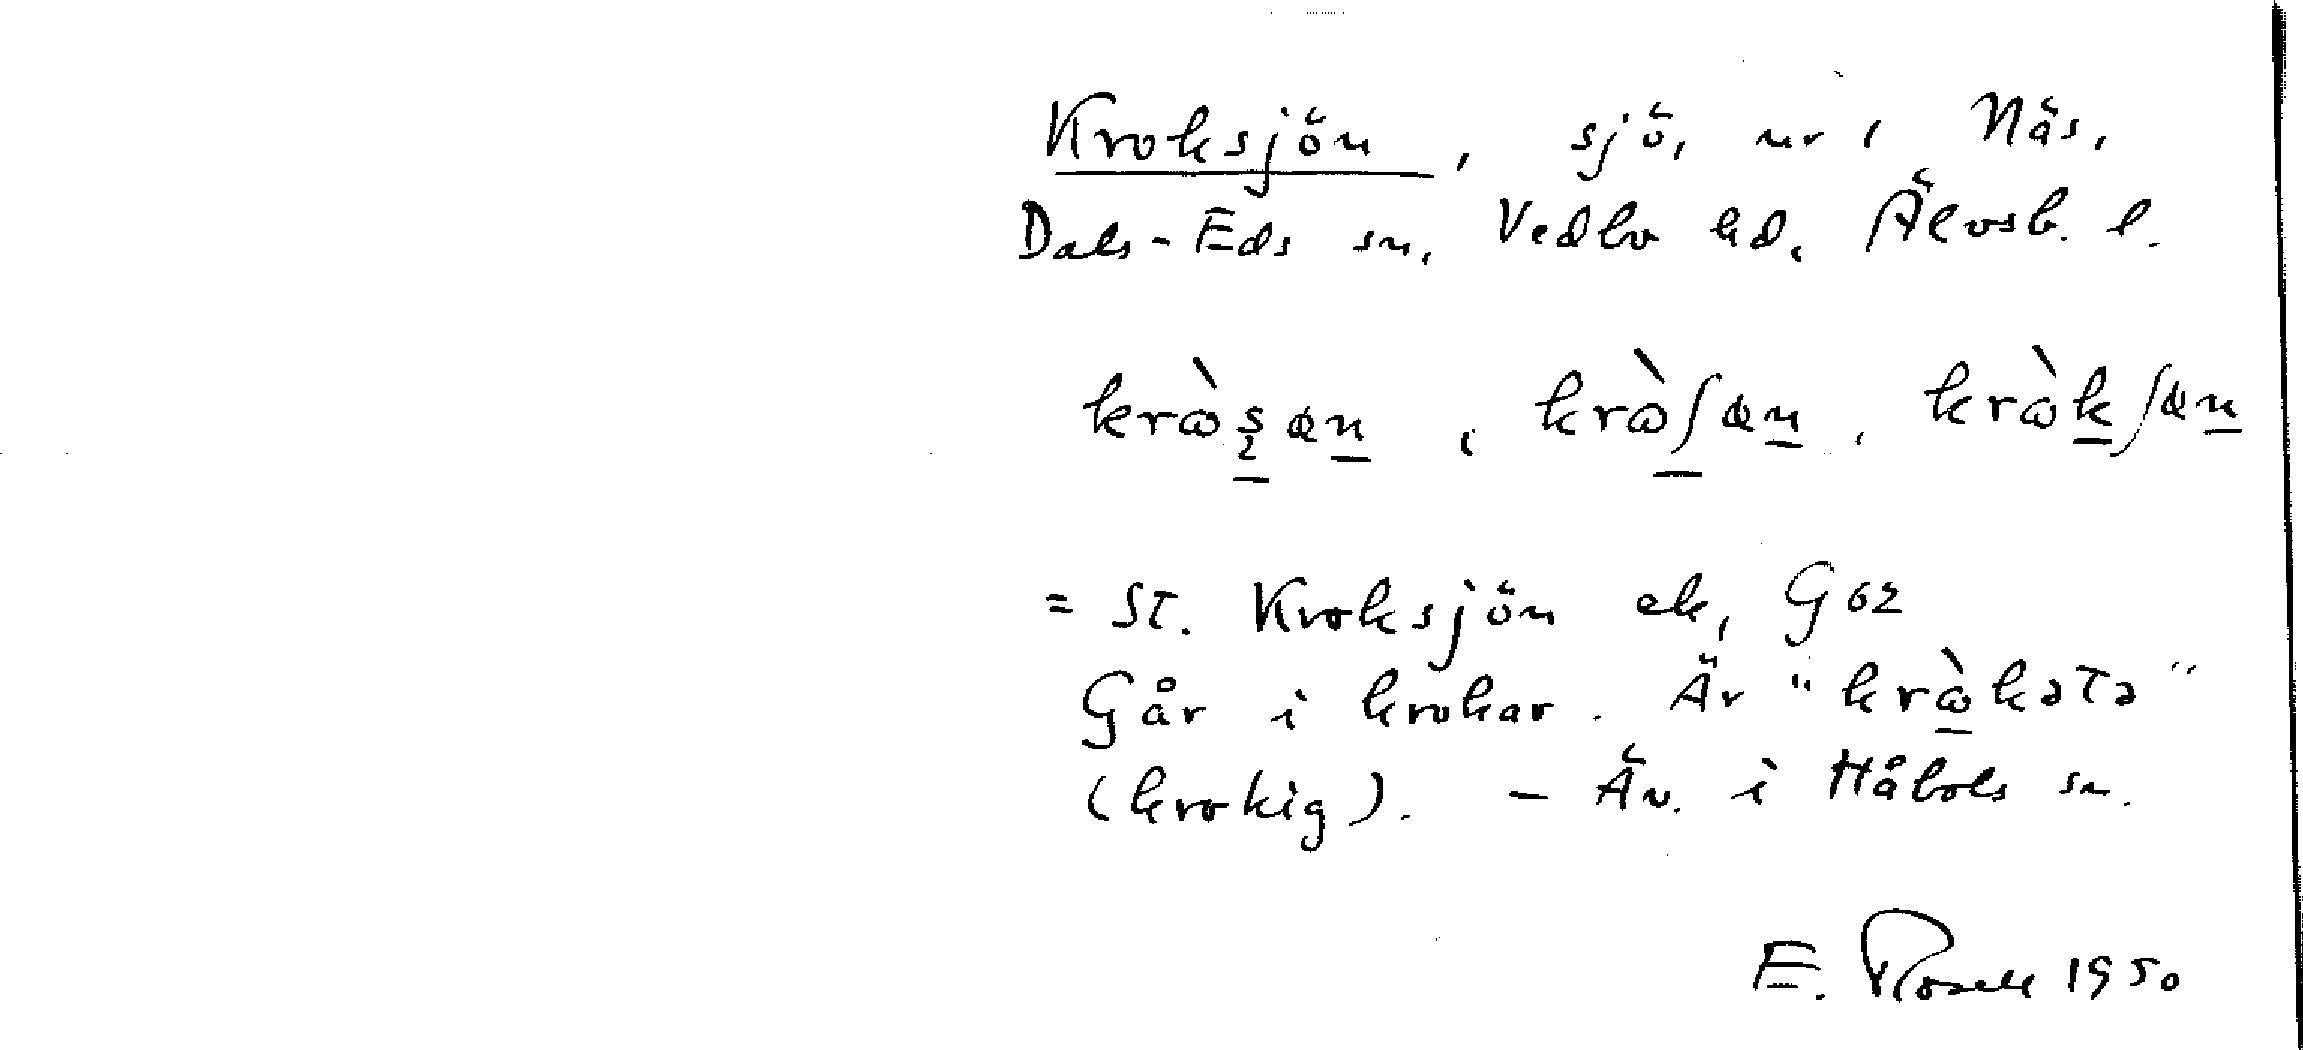 Kroksjön, sjö, nr 1 Näs,
Dals-Eds sn, Vedbo hd, Älvsb. l.
krὼʂɑn, krὼʃɑn, krὼkʃɑn
= St. Kroksjön ek, G62
Går i krokar. Är "krὼkətə"
(krokig). - Äv. i Håbols sn.
E. Rosell 1950